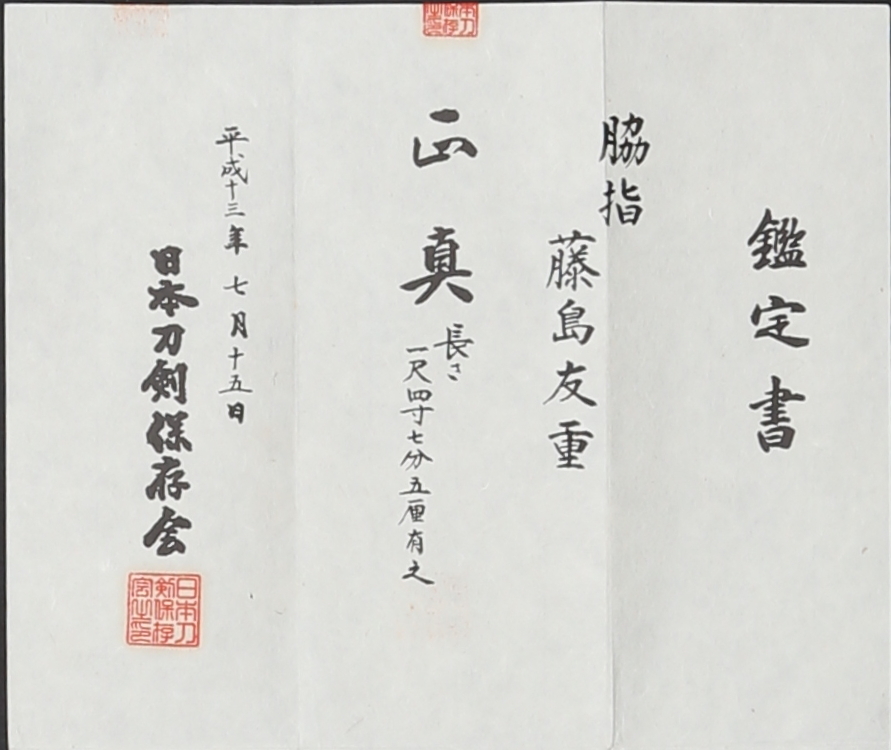 鑑定書
脇指
藤島友重
正真
長さ
一尺四寸七分五厘有之
平成十三年七月十五日
日本刀剣保存会
日本刀
剣保存
会之印